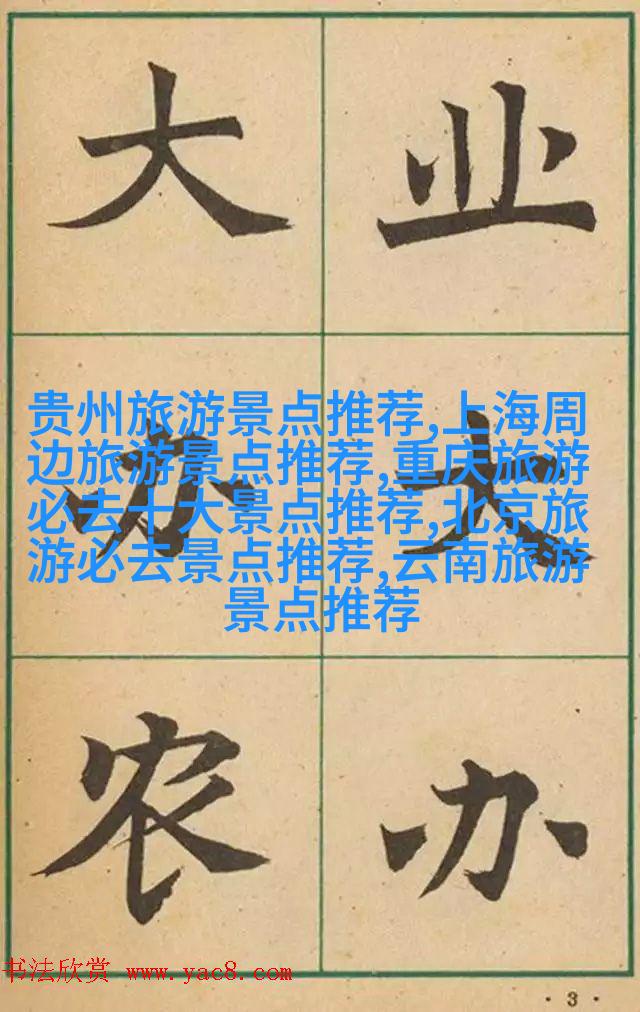 大办农
业大办
贵州旅游景点推荐,上海周
边旅游景点推荐,重庆旅游
必去十大景点推荐,北京旅
游必去景点推荐,云南旅游
景点推荐
书法欣赏 www.yac8.com
·3·